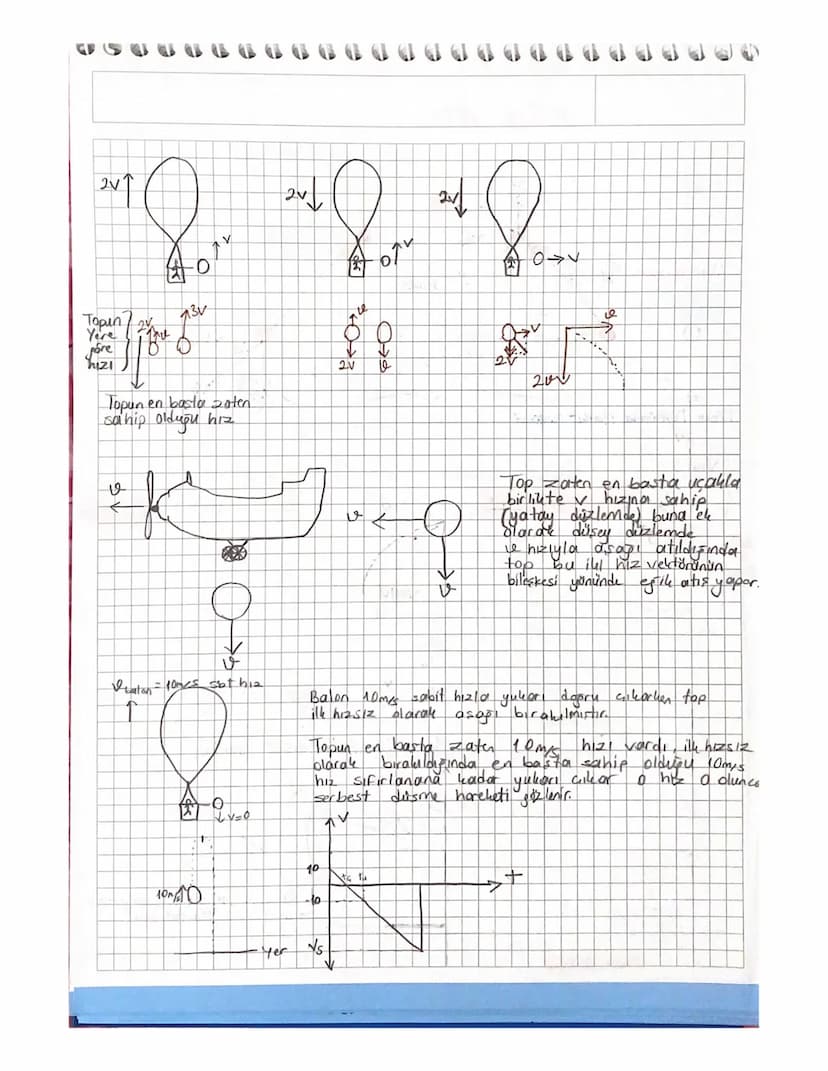 2v
2v
2v
v
v
v
Topun
Yere
göre
hızı
2v
v
3v
v
2v
v
v
2v
v
2v
Topun en başta zaten
sahip olduğu hız
v
v
v
v
Top zaten en başta uçakla
birlikte v hızına sahip
(yatay düzlemde) buna ek
olarak düşey düzlemde
v hızıyla aşağı atıldığında
top bu iki hız vektörünün
bileşkesi yönünde eğik atış yapar.
v balon = 10m/s sbt hız
Balon 10m/s sabit hızla yukarı doğru çıkarken top
ilk hızsız olarak aşağı bırakılmıştır.
Topun en başta zaten 10m/s hızı vardı, ilk hızsız
olarak bırakıldığında en başta sahip olduğu 10m/s
hız sıfırlanana kadar yukarı çıkar o hız 0 olunca
serbest düşme hareketi gözlenir.
v=0
10m/s
Yer
v
10
-10
Vs
t